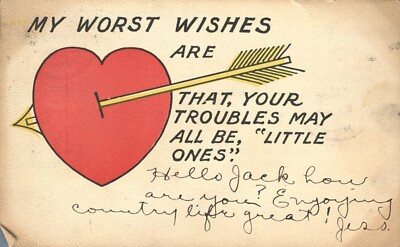 MY WORST WISHES
ARE
THAT, YOUR
TROUBLES MAY
ALL BE, "LITTLE
ONES."
Hello Jack how
are you? Enjoying
country life great!
Jess.